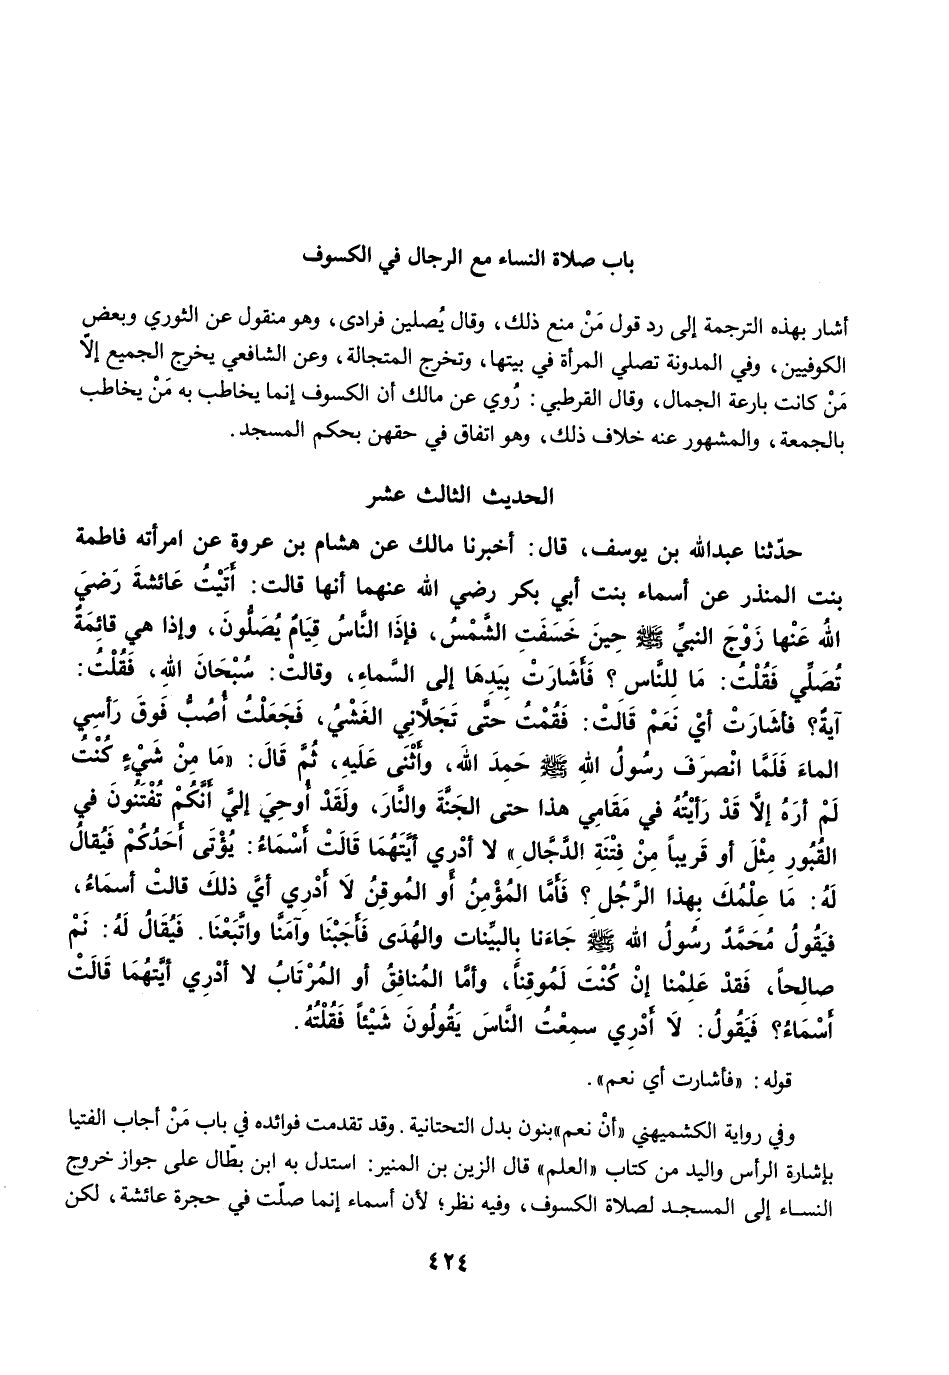 باب صلاة النساء مع الرجال في الكسوف
أشار بهذه الترجمة إلى رد قول مَنْ منع ذلك، وقال يُصلين فرادى، وهو منقول عن الثوري وبعض
الكوفيين، وفي المدونة تصلي المرأة في بيتها، وتخرج المتجالة، وعن الشافعي يخرج الجميع إلّا
مَنْ كانت بارعة الجمال، وقال القرطبي: رُوي عن مالك أن الكسوف إنما يخاطب به مَنْ يخاطب
بالجمعة، والمشهور عنه خلاف ذلك، وهو اتفاق في حقهن بحكم المسجد.
الحديث الثالث عشر
حدّثنا عبدالله بن يوسف، قال: أخبرنا مالك عن هشام بن عروة عن امرأته فاطمة
بنت المنذر عن أسماء بنت أبي بكر رضي الله عنهما أنها قالت: أَتَيْتُ عَائشةَ رَضيَ
اللهُ عَنْها زَوْجَ النبيِّ ﷺ حِينَ خَسَفَتِ الشَّمْسُ، فإذَا النَّاسُ قِيَامٌ يُصَلُّونَ، وإذا هي قائِمَةٌ
تُصَلِّي فَقُلْتُ: مَا لِلنَّاس؟ فَأَشارَتْ بِيَدِهَا إلى السَّماءِ، وقالتْ: سُبْحَانَ اللهِ، فَقُلْتُ:
آيةٌ؟ فأشارَتْ أيْ نَعَمْ قالتْ: فَقُمْتُ حتَّى تَجَلاَّني الغَشْيُ، فَجَعَلْتُ أَصُبُّ فَوقَ رَأسِي
الماءَ فَلَمَّا انْصرَفَ رسولُ اللهِ ﷺ حَمِدَ اللهَ، وأَثْنَى عَلَيهِ، ثُمَّ قَالَ: «مَا مِنْ شَيْءٍ كُنْتُ
لَمْ أرَهُ إلاَّ قَدْ رَأَيْتُهُ في مَقَامِي هذا حتى الجَنَّةَ والنَّارَ، ولَقَدْ أُوحِيَ إليَّ أَنَّكُمْ تُفْتَنُونَ في
القُبُورِ مِثْلَ أو قَريباً مِنْ فِتْنَةِ الدَّجَّال» لا أدْرِي أَيَّتَهُمَا قَالَتْ أَسْمَاءُ: يُؤْتَى أَحَدُكُمْ فَيُقالُ
لَهُ: مَا عِلْمُكَ بِهذا الرَّجُلِ؟ فَأمَّا المُؤْمِنُ أَو المُوقِنُ لاَ أَدْرِي أيَّ ذلكَ قالتْ أسماءُ،
فيَقُولُ مُحَمَّدٌ رسولُ اللهِ ﷺ جَاءَنا بالبيِّناتِ والهُدَى فَأَجَبْنَا وآمَنَّا واتَّبَعْنَا. فَيُقَالُ لَهُ: نَمْ
صالحاً، فَقدْ عَلِمْنا إنْ كُنْتَ لَمُوقِناً، وأمَّا المُنافِقُ أو المُرْتَابُ لا أدْرِي أيَّتَهُمَا قَالَتْ
أَسْمَاءُ؟ فَيَقُولُ: لاَ أَدْرِي سمِعْتُ النَّاسَ يَقُولُونَ شَيْئاً فَقُلْتُهُ.
قوله: «فأشارت أي نعم».
وفي رواية الكشميهني «أنْ نعم» بنون بدل التحتانية. وقد تقدمت فوائده في باب مَنْ أجاب الفتيا
بإشارة الرأس واليد من كتاب «العلم» قال الزين بن المنير: استدل به ابن بطّال على جواز خروج
النساء إلى المسجد لصلاة الكسوف، وفيه نظر؛ لأن أسماء إنما صلّت في حجرة عائشة، لكن
٤٢٤